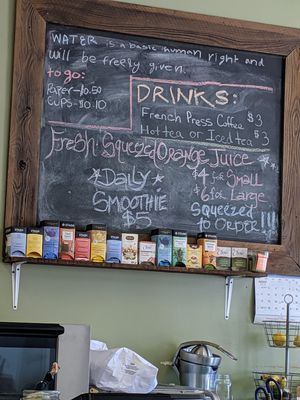 WATER is a basic human right and
will be freely given.
to go:
PAPER - $0.50
CUPS - $0.10
DRINKS:
French Press Coffee $3
Hot tea or Iced Tea $3
Fresh Squeezed Orange Juice
$4 for Small
$6 for Large
Squeezed
to ORDER!!!
*Daily*
SMOOTHIE
$5